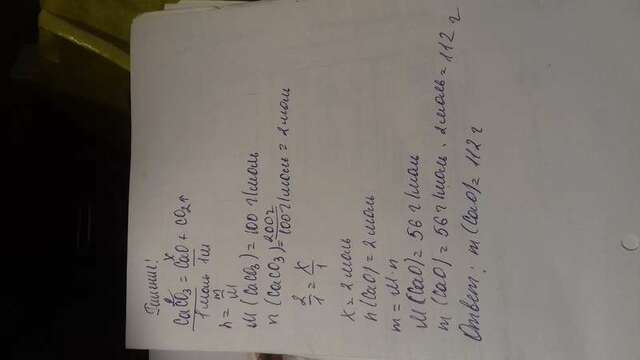 Решение!
2 x
CaCO₃ = CaO + CO₂↑
1 моль 1м
n = m/M
M (CaCO₃) = 100 г/моль
n (CaCO₃) = 200г/100г/моль = 2 моль
2/1 = x/1
x = 2 моль
n(CaO) = 2 моль
m = M·n
M(CaO) = 56 г/моль
m (CaO) = 56 г/моль · 2 моль = 112 г
Ответ: m (CaO) = 112 г